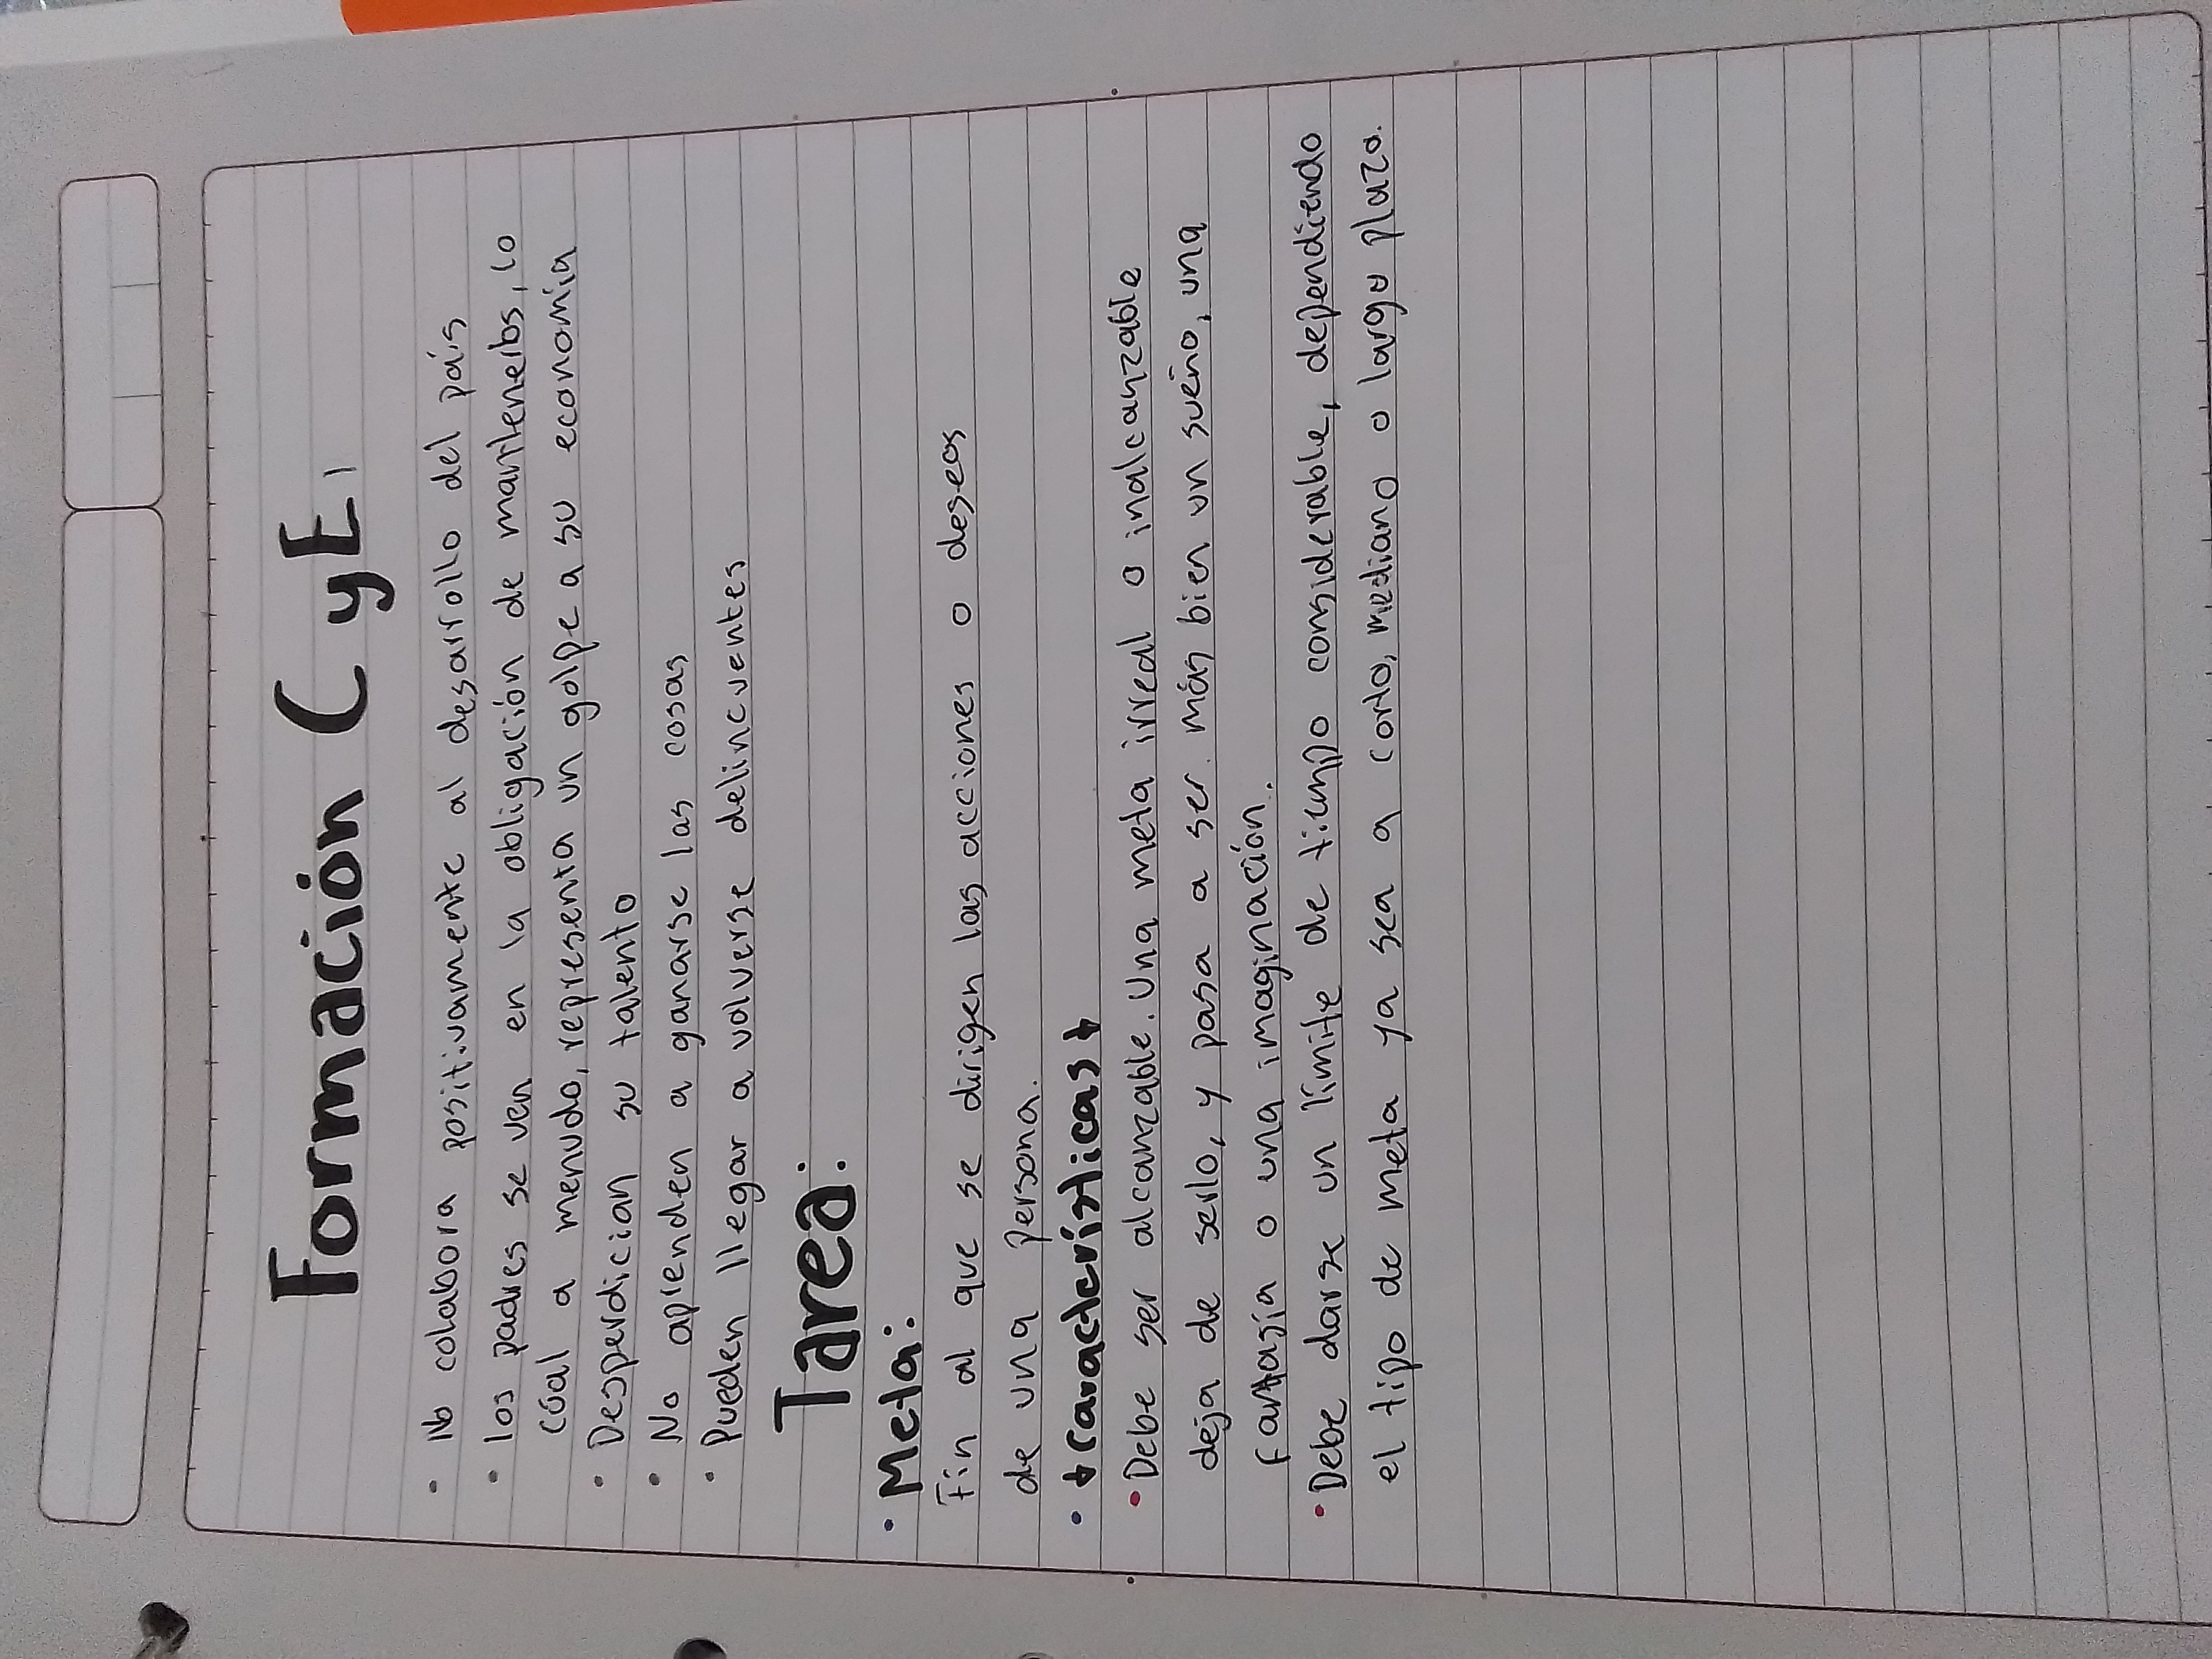 Formación C y E
• No colabora positivamente al desarrollo del país
• Los padres se ven en la obligación de mantenerlos, lo
cúal a menudo, representa un golpe a su economía
• Desperdician su talento
• No aprenden a ganarse las cosas
• Pueden llegar a volverse delincuentes
Tarea:
• Meta:
Fin al que se dirigen las acciones o deseos
de una persona.
• ↓ Características ↓
• Debe ser alcanzable. Una meta irreal o inalcanzable
deja de serlo, y pasa a ser más bien un sueño, una
fantasía o una imaginación.
• Debe darse un límite de tiempo considerable, dependiendo
el tipo de meta ya sea a corto, mediano o largo plazo.